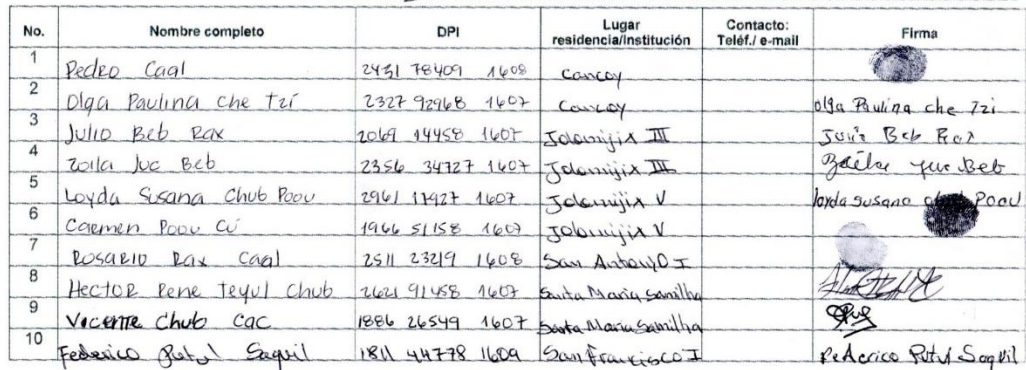 No. Nombre completo DPI Lugar residencia/institución Contacto: Teléf./ e-mail Firma
1 Pedro Caal 2431 78409 1608 Cancoy
2 Olga Paulina Che Tzí 2327 92968 1607 Cancoy olga Paulina che Tzi
3 Julio Beb Rax 2069 14458 1607 Jolomijix III Julio Beb Rax
4 Zoila Juc Beb 2356 34727 1607 Jolomijix III Zoila Juc Beb
5 Loyda Susana Chub Poou 2961 17927 1607 Jolomijix V loyda susana chub Poou
6 Carmen Poou Cú 1966 51158 1607 Jolomijix V
7 Rosario Rax Caal 2511 23219 1608 San Antonio I
8 Hector Rene Teyul Chub 2621 91458 1607 Santa Maria Samilha
9 Vicente Chub Cac 1886 26549 1607 Santa Maria Samilha
10 Federico Putul Saquil 1811 44778 1609 San Francisco I Federico Putul Saquil